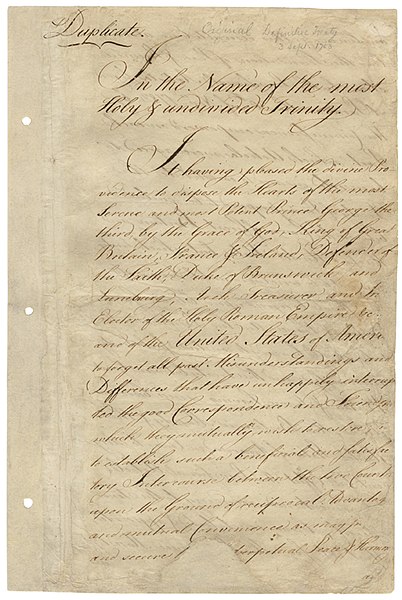 Duplicate.
Original Definitive Treaty
3 Sept. 1783
In the Name of the most
Holy & undivided Trinity.
It having pleased the divine Pro
vidence to dispose the Hearts of the most
Serene and most Potent Prince George the
third, by the Grace of God, King of Great
Britain, France & Ireland, Defender of
the Faith, Duke of Brunswick and
Lunebourg, Arch Treasurer and
Elector of the Holy Roman Empire &c.
and of the United States of Ameri
to forget all past Misunderstandings and
Differences that have unhappily interrup
ted the good Correspondence and Friendship
which they mutually wish to restore;
to establish such a beneficial and satisfac
tory Intercourse between the two Countries
upon the Ground of reciprocal Advantages
and mutual Convenience as may
and secure perpetual Peace & Harmony